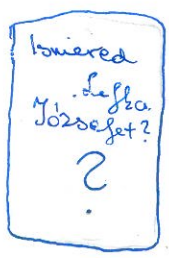 Ismered
Lefka
Józsefet?
?